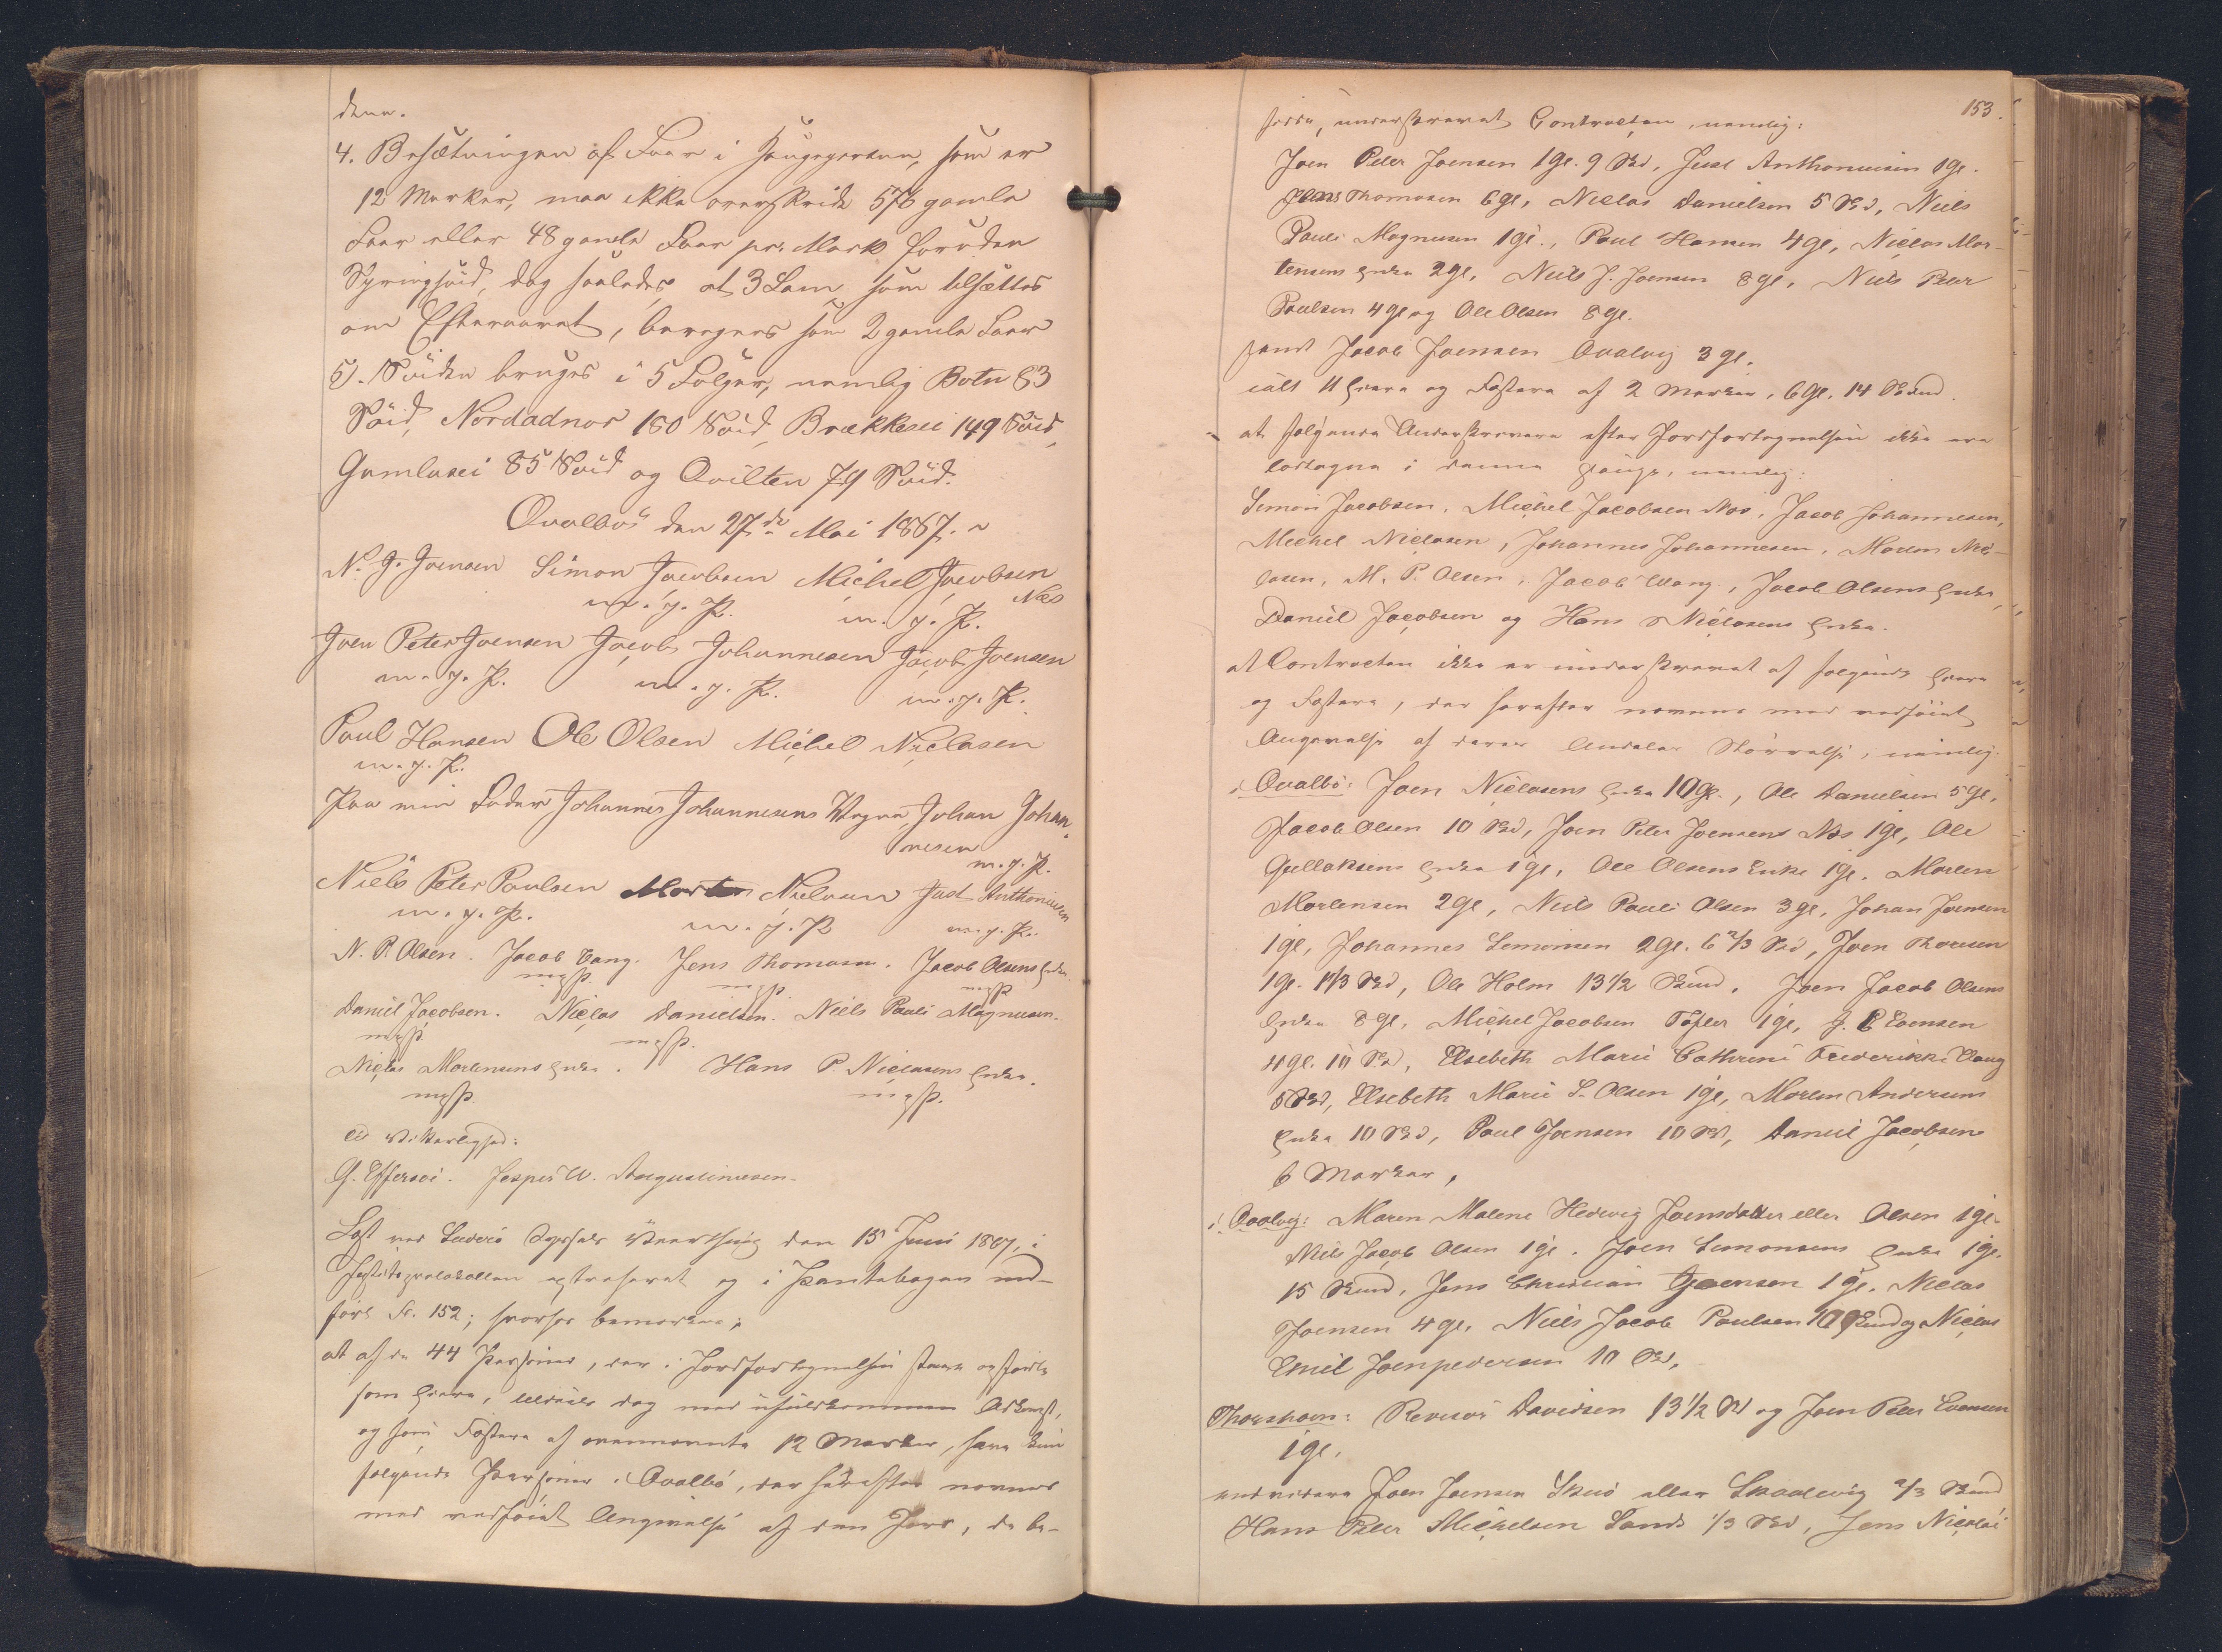 dene.
4. Besætningen af Faar i Haugepartem, som er
12 Marker, maa ikke overskride 576 gamle
Faar eller 48 gamle Faar pr. Mark foruden
Springsöid, dog saaledes at 3 Lam som tilsættes
om Efteraaret, beregnes som 2 gamle Faar
5. Söiden bruges i 5 Fölger, nemlig Botn 83
Söid, Nordadnos 180 Söid, Brekkesei 149 Söid,
Gamlasei 85 Söid og Qvilten 79 Söid.
Qvalbö den 27de Mai 1887.
N. J. Joensen Simon Jacobsen Michel Jacobsen
Næs
m. p. P. m. p. P.
Joen Peter Joensen Jacob Johannesen Jacob Joensen
m. p. P. m. p. P. m. p. P.
Poul Hansen Ole Olsen Michel Niclasen
m. p. P.
Paa min Fader Johannes Johannesens Vegne, Johan Johan-
nesen
m. p. P.
Niels Peter Poulsen Morten Nielasen Just Anthoniusen
m. p. P. m. p. P. m. p. P.
N. P. Olsen. Jacob Vang. Jens Thomasen. Jacob Olsens Enke.
mpp. mpp. mpp
Daniel Jacobsen. Niclas Danielsen. Niels Pauli Magnusen.
mpp. mpp.
Niclas Mortensens Enke. Hans P. Niclasens Enke.
mpp. mpp.
Til Vitterlighed:
G. Effersöe. Jesper W. Augustinusen.
Læst ved Suderö Syssels Vaarthing den 15 Juni 1887, i
Justitsprotokollen extraheret og i Pantebogen ind-
fört Fo. 152; hvorhos bemærkes;
at af de 44 Personer, der i Jordfortegnelsen staae opförte
som Eiere, tildeels dog med ufuldkommen Adkomst,
og som Fæstere af ovennævnte 12 Marker, have kun
fölgende Personer i Qvalbö, der herefter nævnes
med vedföiet Angivelse af den Jord, de be-
153.
sidde, underskrevet Contracten, nemlig:
Joen Peter Joensen 1 Gl. 9 Skd, Just Anthoniusen 1 Gl.
Jens Thomasen 6 Gl, Niclas Danielsen 5 Skd, Niels
Pauli Magnusen 1 Gl., Poul Hansen 4 Gl, Niclas Mor-
tensens Enke 2 Gl, Niels J. Joensen 8 Gl, Niels Peter
Poulsen 4 Gl og Ole Olsen 8 Gl.
samt Jacob Joensen Qvalvig 3 Gl.
ialt 11 Eiere og Fæstere af 2 Marker, 6 Gl. 14 Skind.
at fölgende Underskrivere efter Jordfortegnelsen ikke ere
lodtagne i denne Hauge, nemlig:
Simon Jacobsen, Michel Jacobsen Næs, Jacob Johannesen,
Michel Niclasen, Johannes Johannesen, Morten Nic-
lasen, M. P. Olsen, Jacob Vang, Jacob Olsens Enke,
Daniel Jacobsen og Hans Niclasens Enke.
at Contracten ikke er underskrevet af fölgende Eiere
og Fæstere, der herefter nævnes med vedföiet
Angivelse af deres Andeles Störrelse, nemlig:
i Qvalbö: Joen Niclasens Enke 10 Gl., Ole Danielsen 5 Gl,
Jacob Olsen 10 Skd, Joen Peter Joensens Næs 1 Gl, Ole
Gullaksens Enke 1 Gl, Ole Olsens Enke 1 Gl. Morten
Mortensen 2 Gl, Niels Pauli Olsen 3 Gl, Johan Joensen
1 Gl, Johannes Simonsen 2 Gl. 6 2/3 Skd, Joen Thomsen
1 Gl. 1 1/3 Skd, Ole Holm 13 1/2 Skind. Joen Jacob Olsens
Enke 8 Gl, Michel Jacobsen Tofter 1 Gl, J. P Evensen
4 Gl. 10 Skd, Elsebeth Marie Cathrine Frederikke Vang
8 Skd, Elsebeth Marie S. Olsen 1 Gl, Morten Andersens
Enke 10 Skd, Poul Joensen 10 Skd, Daniel Jacobsen
6 Marker,
i Qvalvig: Maren Malene Hedevig Joensdatter eller Olsen 1 Gl.
Niels Jacob Olsen 1 Gl. Joen Simonsens Enke 1 Gl.
15 Skind, Jens Christian Joensen 1 Gl. Niclas
Joensen 4 Gl. Niels Jacob Poulsen 10 Skind og Niclas
Emil Joenpedersen 10 Skd,
Thorshavn: Revisor Davidsen 13 1/2 Skd og Joen Peter Evensen
1 Gl.
endvidere Joen Joensen Skuö eller Skaalevig 2/3 Skind
Hans Peter Michelsen Sands 1/3 Skd, Jens Nicolai